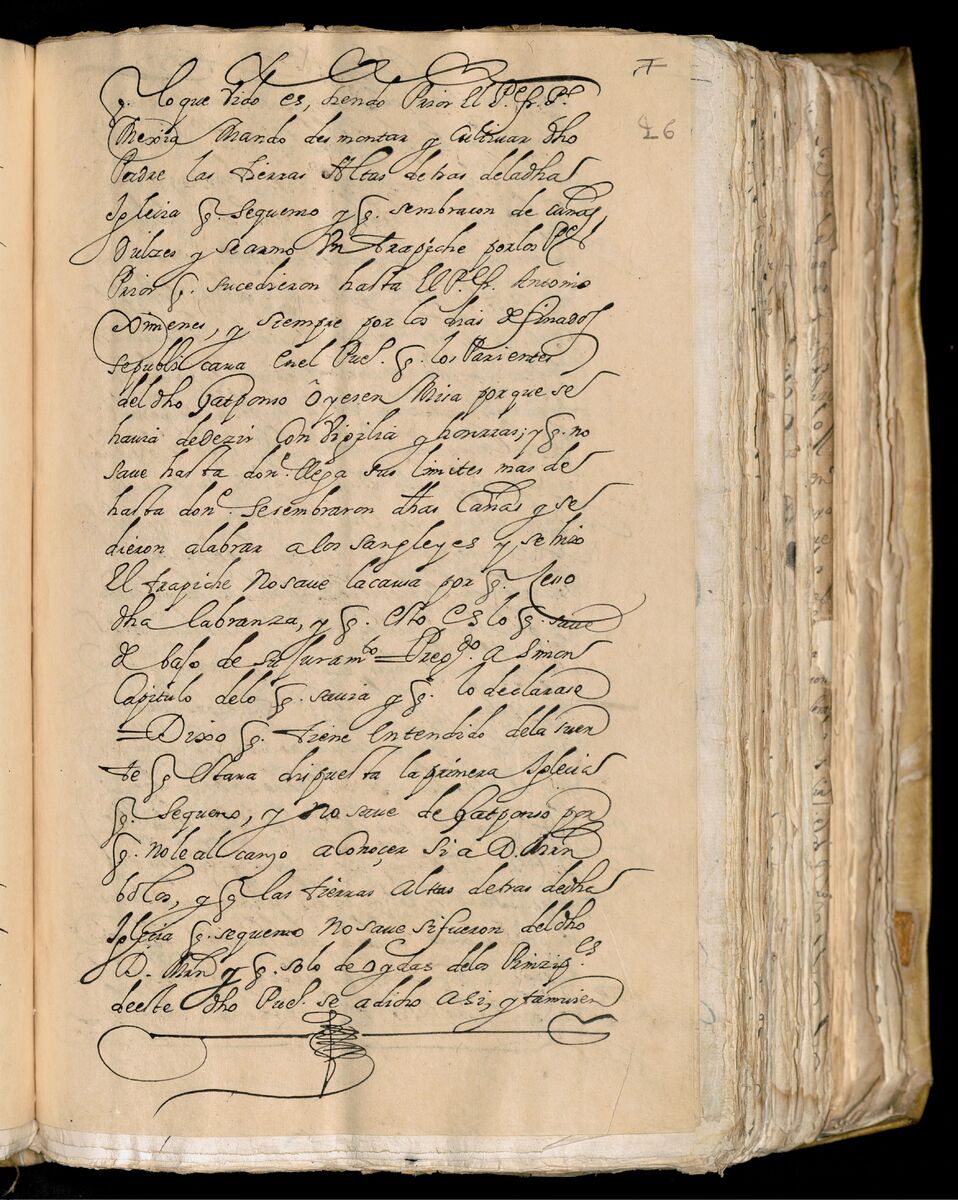 26
q. lo que vido es, siendo Prior El P.e fr. P.o
Mexia Mando desmontar y cultivar dho
Padre las tierras Altas detras dela dha
Iglecia q. sequemo y q. sembraron de cañas
Dulzes y se armo Un trapiche por los P.es
Prior q. sucedieron hasta El P.e fr. Antonio
Ximenes, y siempre por los dias de finados
sepublicava En el Pue.o q. los Parientes
del dho Gatponso Oyesen Misa porque se
havia dedezir Con Vigilia y honrras; y q. no
save hasta don.e llega sus limites mas de
hasta don.e sesembraron dhas Cañas y se
dieron alabrar a los sangleyes y se hizo
El trapiche No save la causa por q. seso
dha labranza, y q. esto es lo q. save
de baso de su Juram.to = Preg.do A Simon
Capitulo delo q. savia y q. lo declarase
= Dixo q. tiene Entendido dela suer
te q. Estava dispuesta la primera Iglecia
q. sequemo, y No save de Gatponso por
q. no le al canso aConoçer si a D. Mrn
bolos, y q. las tierras altas detras dedha
Iglecia q. sequemo No save si fueron del dho
D. Mrn y q. solo de oydas delos Prinzip.es
deeste dho Pue.o se a dicho asi, y tamvien